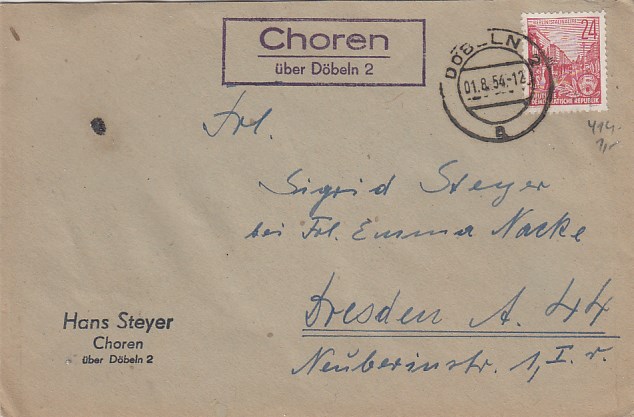 Choren
über Döbeln 2
DÖBELN 2
01.8.54.-12
a
24
DEMOKRATISCHE REPUBLIK
414.-
Frl.
Sigrid Steyer
bei Frl. Emma Nacke
Dresden A. 44
Neuberinstr. 1, I. r.
Hans Steyer
Choren
über Döbeln 2